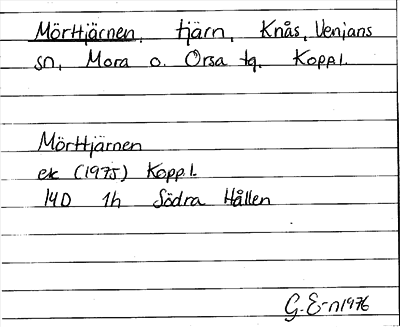 Mörttjärnen, tjärn, Knås, Venjans
sn, Mora o. Orsa tg. Koppl.
Mörttjärnen
ek (1975) Koppl.
14D 1h Södra Hållen
G. E-n 1976